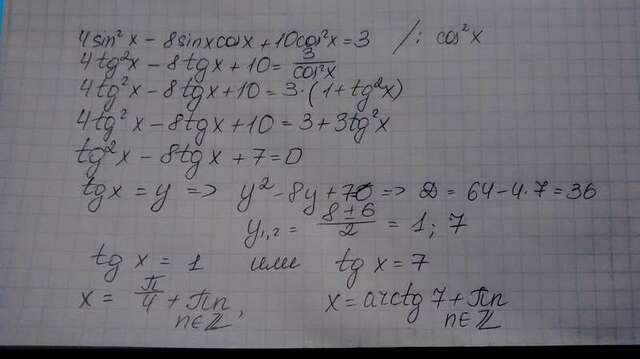 4sin²x − 8sinxcosx + 10cos²x = 3 /: cos²x
4tg²x − 8tgx + 10 = 3/cos²x
4tg²x − 8tgx + 10 = 3·(1 + tg²x)
4tg²x − 8tgx + 10 = 3 + 3tg²x
tg²x − 8tgx + 7 = 0
tgx = y => y² − 8y + 70 => D = 64 − 4·7 = 36
y₁,₂ = (8 ± 6)/2 = 1; 7
tg x = 1 или tg x = 7
x = π/4 + πn, x = arctg 7 + πn
n∈ℤ n∈ℤ